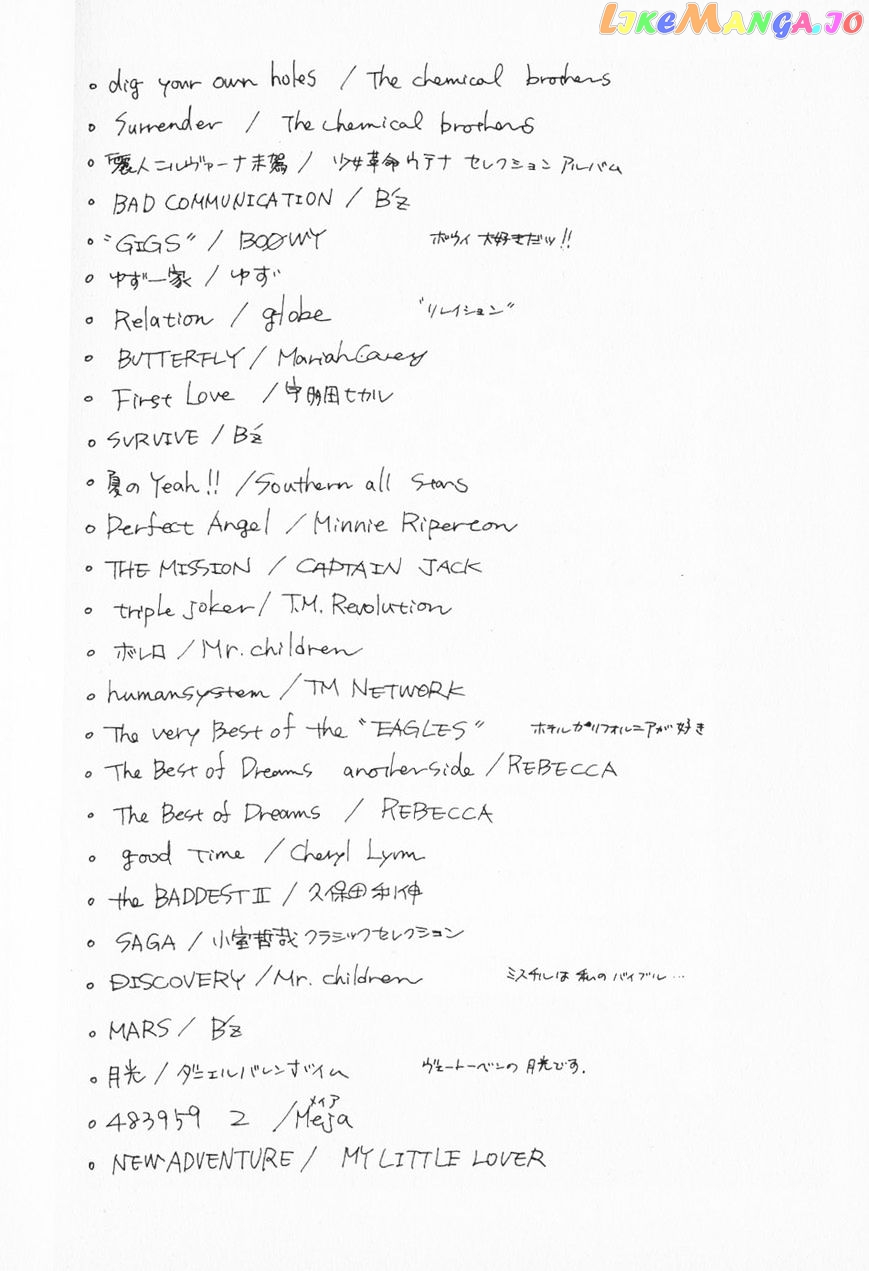 LIKEMANGA.IO
• dig your own holes / The chemical brothers
• Surrender / The chemical brothers
• 麗人ニルヴァーナ来駕 / 少女革命ウテナ セレクション アルバム
• BAD COMMUNICATION / B'z
• "GIGS" / BOØWY ボウイ 大好きだッ!!
• ゆず一家 / ゆず
• Relation / globe "リレイション"
• BUTTERFLY / Mariah Carey
• First Love / 宇多田ヒカル
• SURVIVE / B'z
• 夏のYeah!! / Southern all stars
• Perfect Angel / Minnie Ripereon
• THE MISSION / CAPTAIN JACK
• triple joker / T.M. Revolution
• ボレロ / Mr. children
• humansystem / TM NETWORK
• The very Best of the "EAGLES" ホテルカリフォルニアが好き
• The Best of Dreams another side / REBECCA
• The Best of Dreams / REBECCA
• good Time / Cheryl Lynn
• the BADDEST II / 久保田利伸
• SAGA / 小室哲哉クラシックセレクション
• DISCOVERY / Mr. children ミスチルは私のバイブル…
• MARS / B'z
• 月光 / ダニエルバレンボイム ヴェートーベンの月光です.
メイア
• 483959 2 / Meja
• NEW ADVENTURE / MY LITTLE LOVER